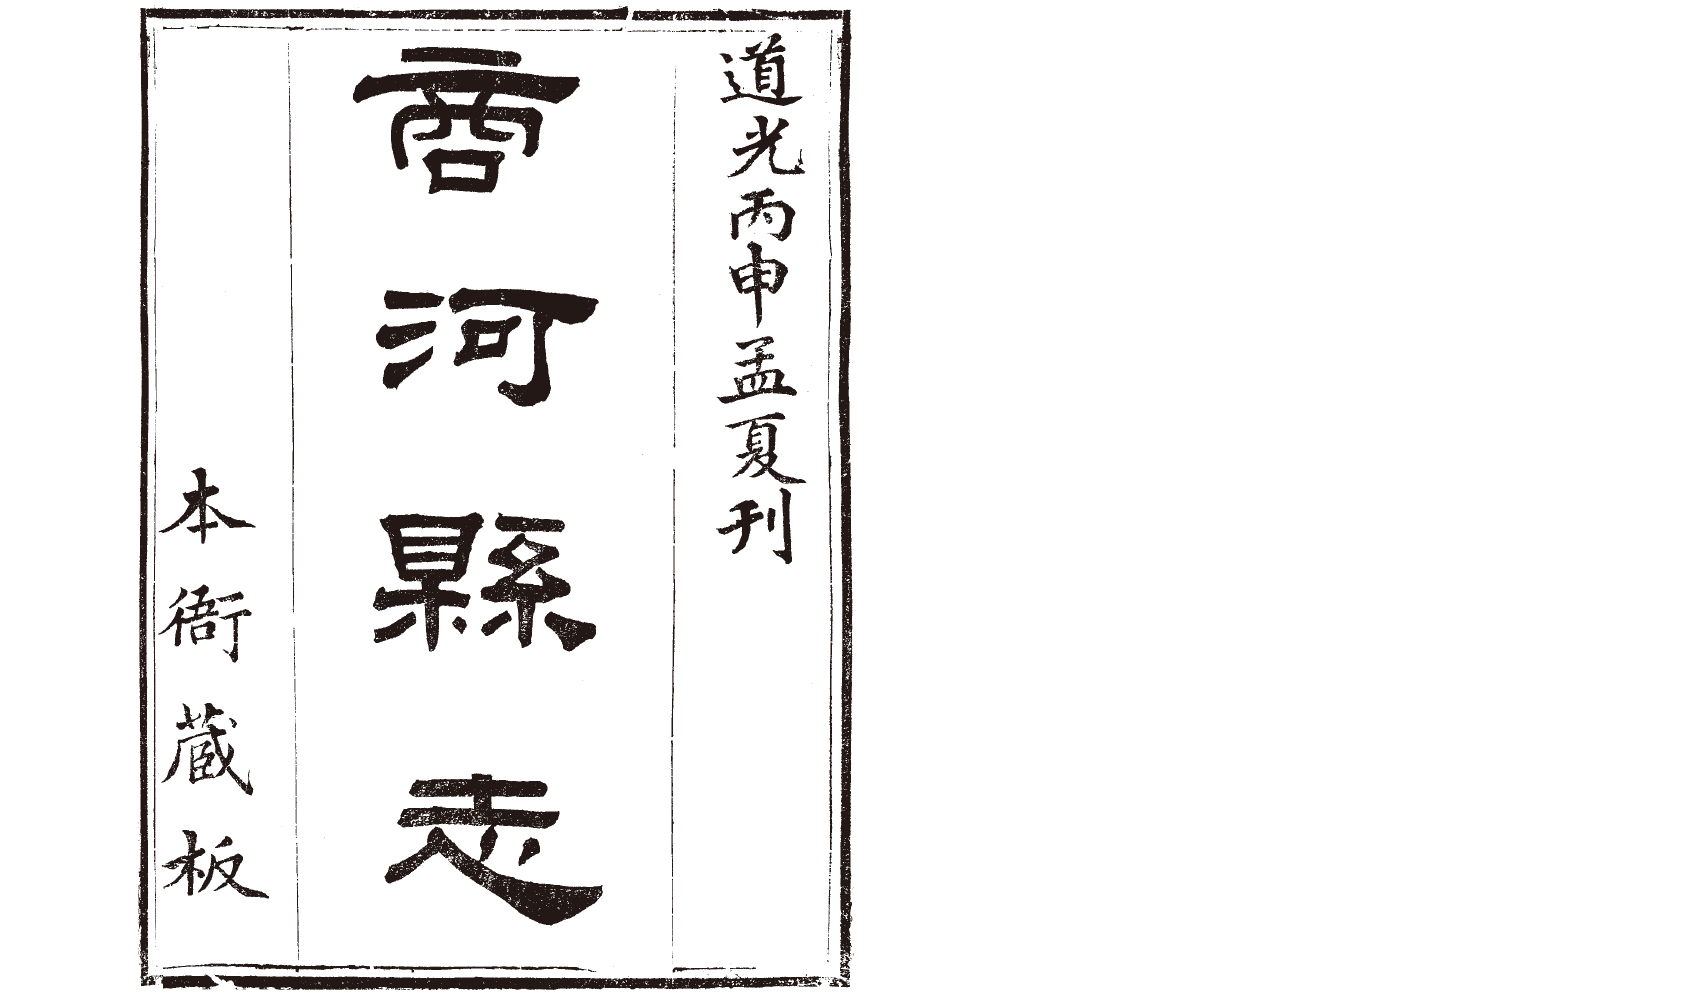 道光丙申孟夏刋
商河縣志
本衙蔵板